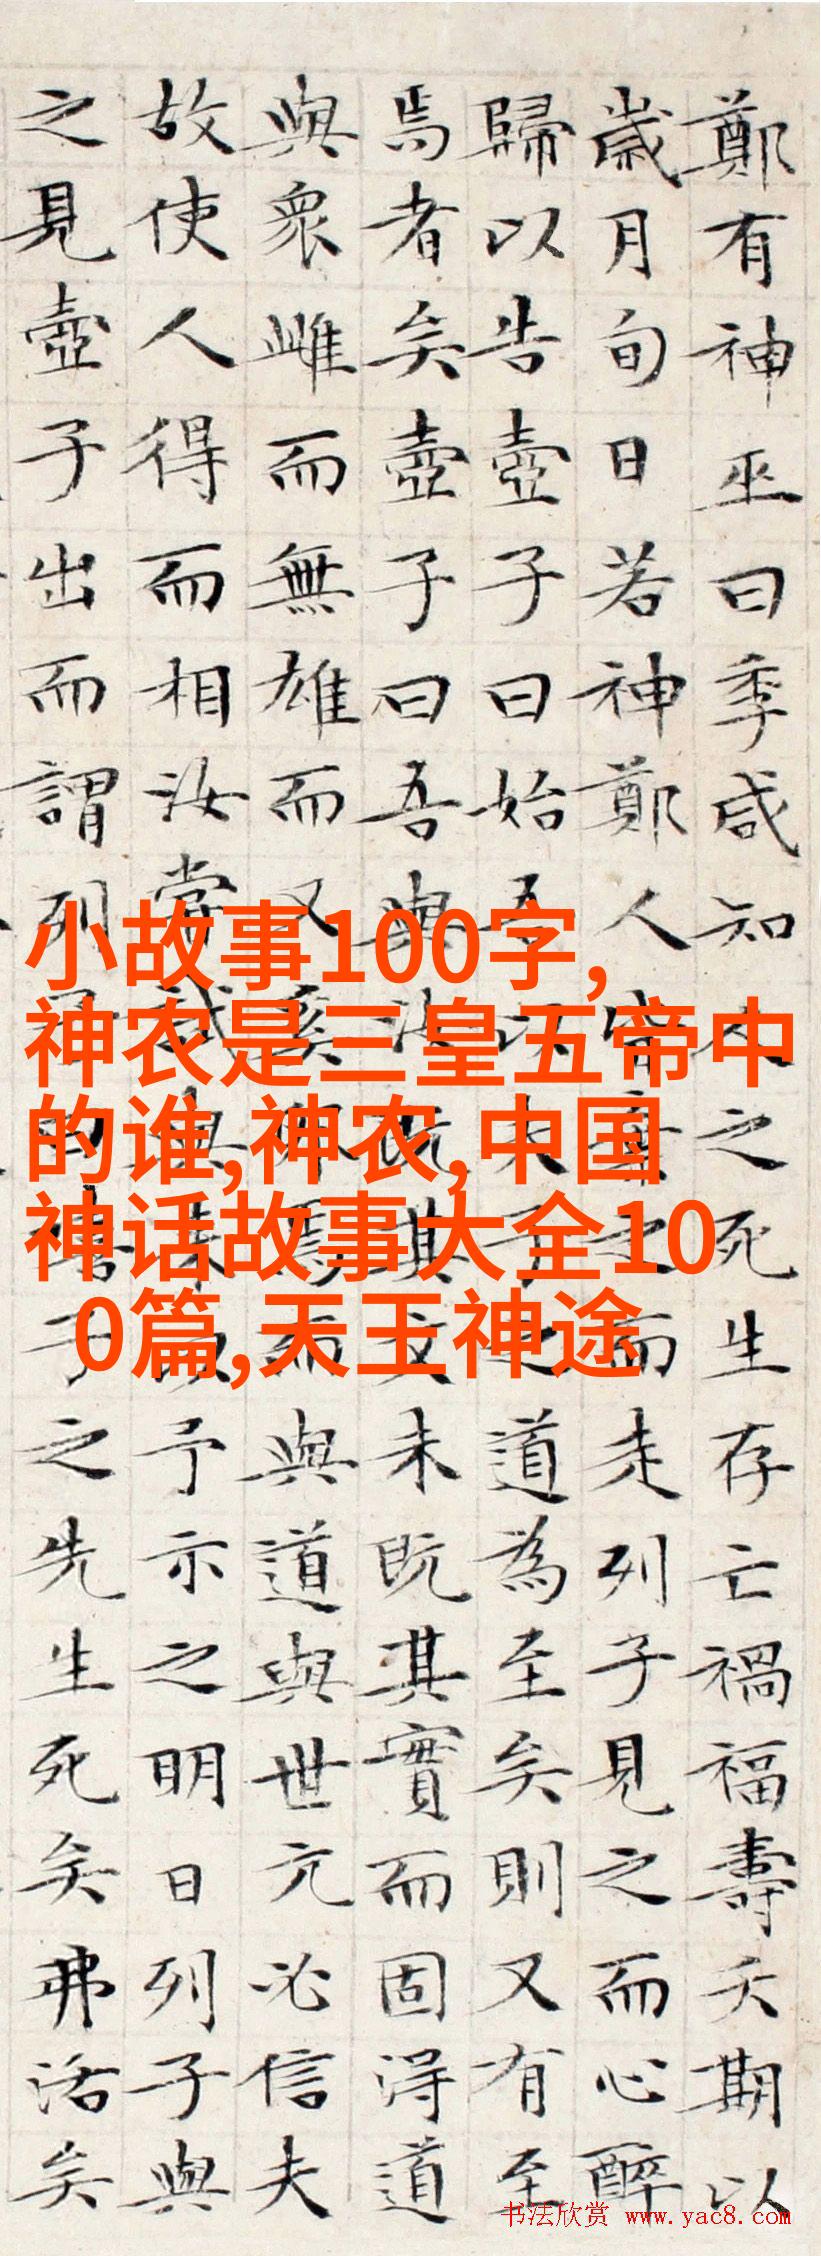 鄭有神巫曰季咸知人之死生存亡禍福壽夭期以
歲月旬日若神鄭人皆棄之而走列子見之而心醉
歸以告壺子曰始吾以夫子之道為至矣則又有至
焉者矣壺子曰吾與汝既其文未既其實而固得道
與衆雌而無雄而又奚卵焉而與道與世亢必信夫
故使人得而相汝嘗試與來以予示之明日列子與
之見壺子出而謂列子曰嘻子之先生死矣弗活矣
小故事100字,
神农是三皇五帝中
的谁,神农,中国
神话故事大全10
0篇,天王神途
书法欣赏 www.yac8.com